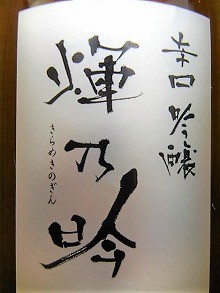 辛口吟醸
煇乃吟
きらめきのぎん